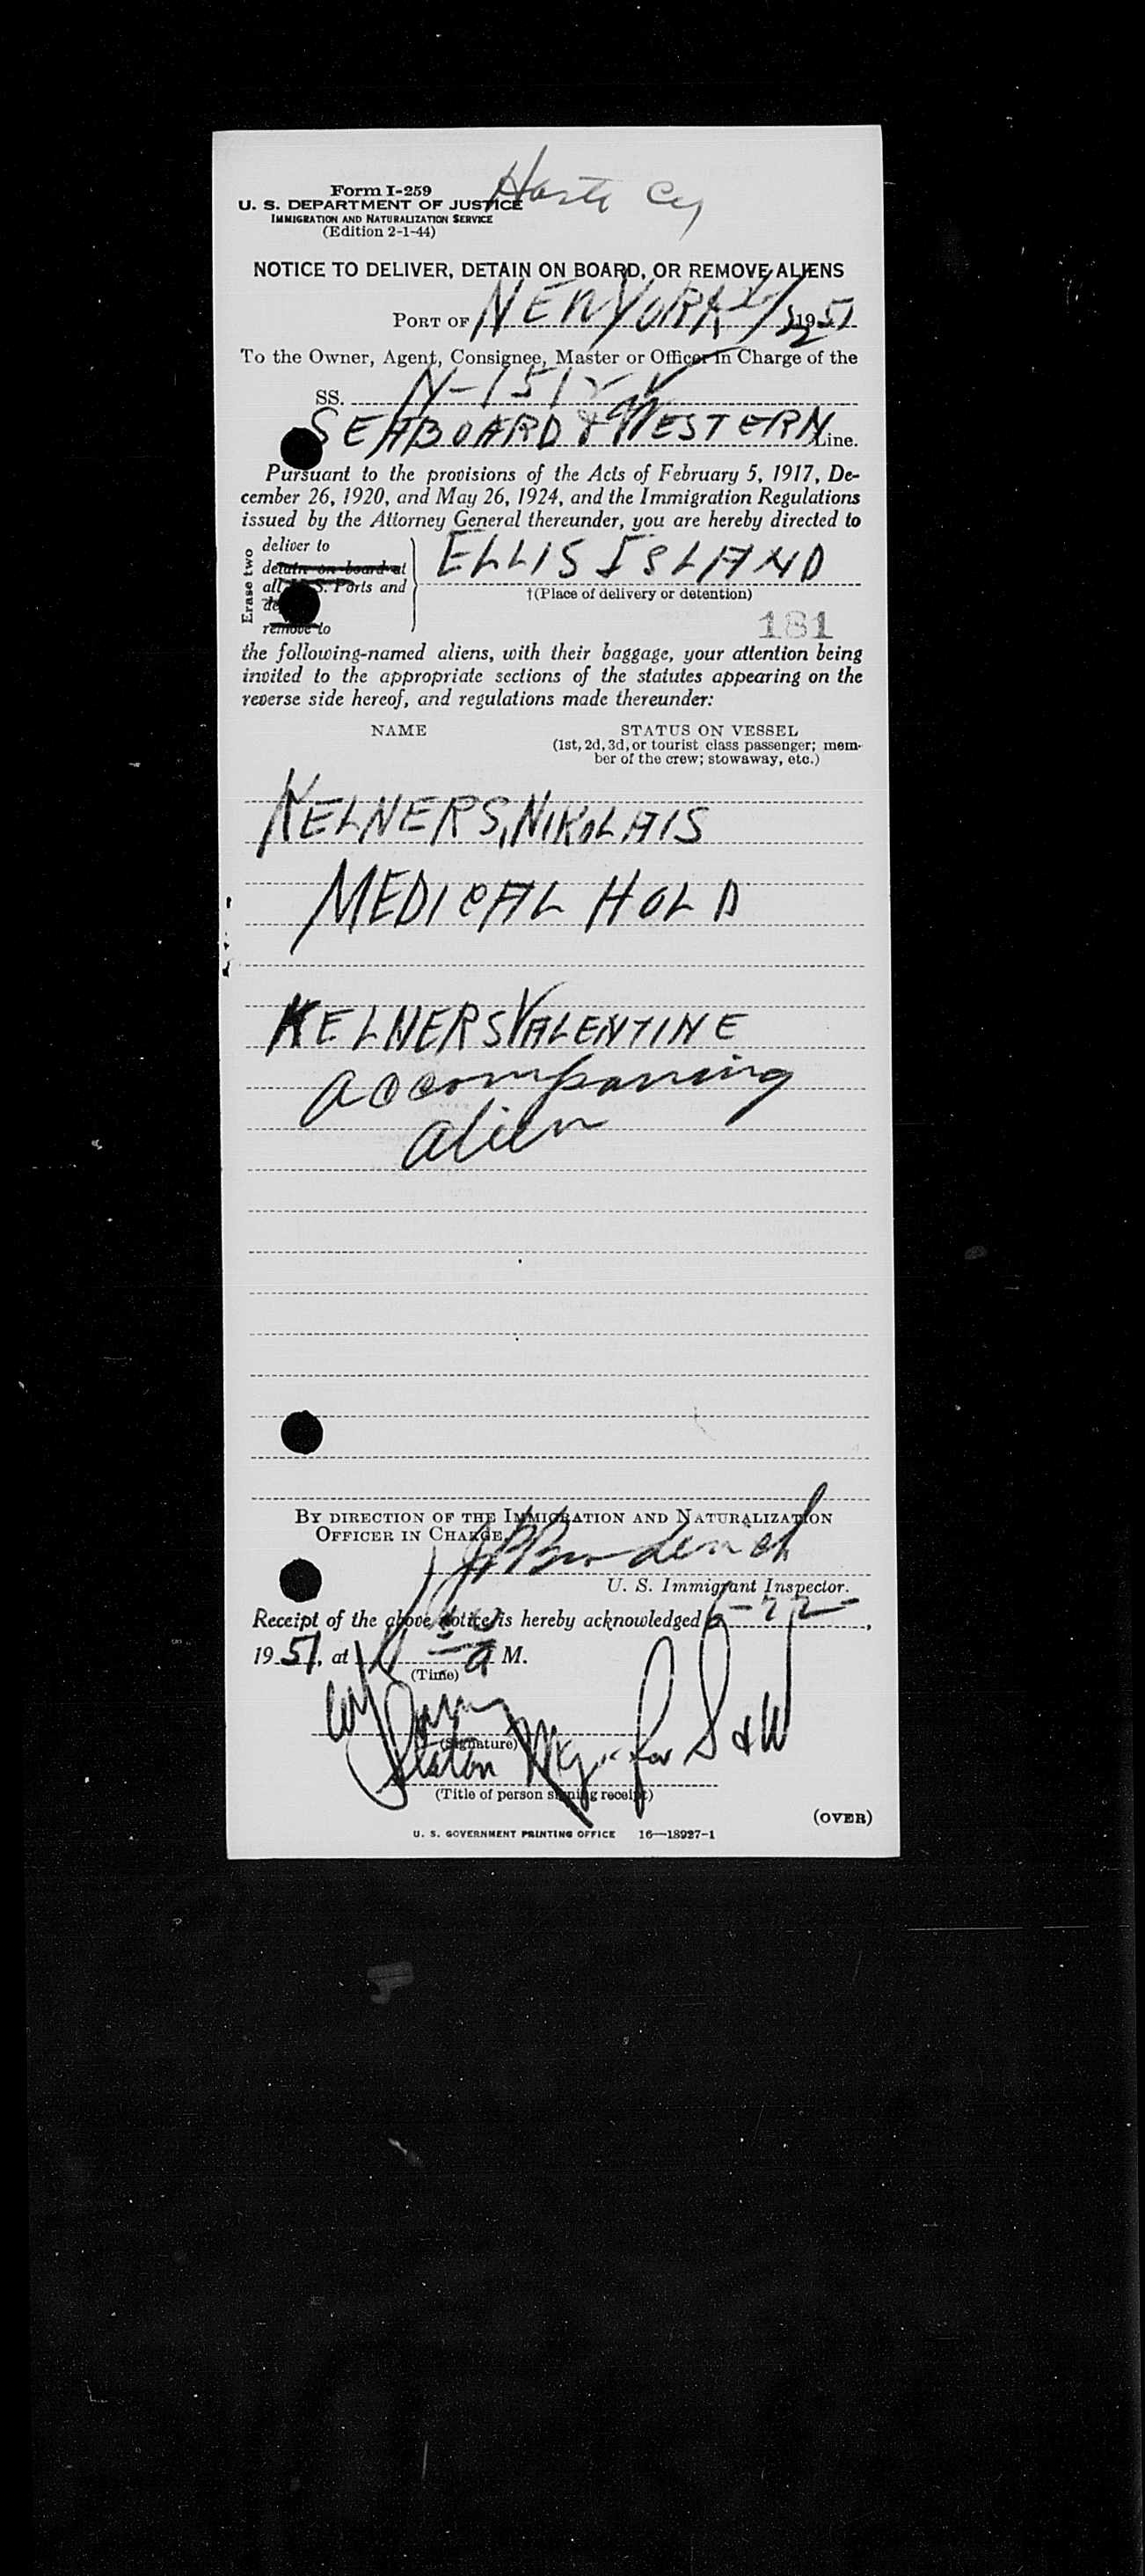 Form I-259
U. S. DEPARTMENT OF JUSTICE
IMMIGRATION AND NATURALIZATION SERVICE
(Edition 2-1-44)
NOTICE TO DELIVER, DETAIN ON BOARD, OR REMOVE ALIENS
PORT OF NEW YORK 1951
To the Owner, Agent, Consignee, Master or Officer in Charge of the
SS. N-1512-V
SEABOARD & WESTERN Line.
Pursuant to the provisions of the Acts of February 5, 1917, De-
cember 26, 1920, and May 26, 1924, and the Immigration Regulations
issued by the Attorney General thereunder, you are hereby directed to
Erase two
deliver to
detain on board at
all U. S. Ports and
remove to
ELLIS ISLAND
†(Place of delivery or detention)
181
the following-named aliens, with their baggage, your attention being
invited to the appropriate sections of the statutes appearing on the
reverse side hereof, and regulations made thereunder:
NAME STATUS ON VESSEL
(1st, 2d, 3d, or tourist class passenger; mem-
ber of the crew; stowaway, etc.)
KELNERS, NIKOLAIS
MEDICAL HOLD
KELNERS VALENTINE
accompaning
alien
BY DIRECTION OF THE IMMIGRATION AND NATURALIZATION
OFFICER IN CHARGE,
U. S. Immigrant Inspector.
Receipt of the above notice is hereby acknowledged
1951, at a M.
(Time)
(Signature)
Station Mgr for S & W
(Title of person signing receipt)
(OVER)
U. S. GOVERNMENT PRINTING OFFICE 16—18927-1